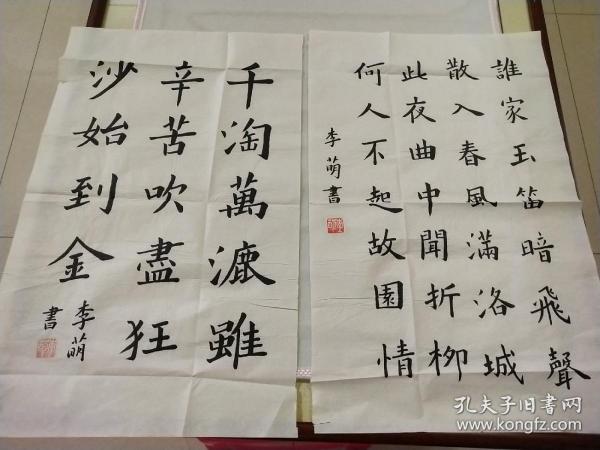 誰家玉笛暗飛聲
散入春風滿洛城
此夜曲中聞折柳
何人不起故園情
李萌書
千淘萬漉雖
辛苦吹盡狂
沙始到金
李萌
書
孔夫子旧书网
www.kongfz.com